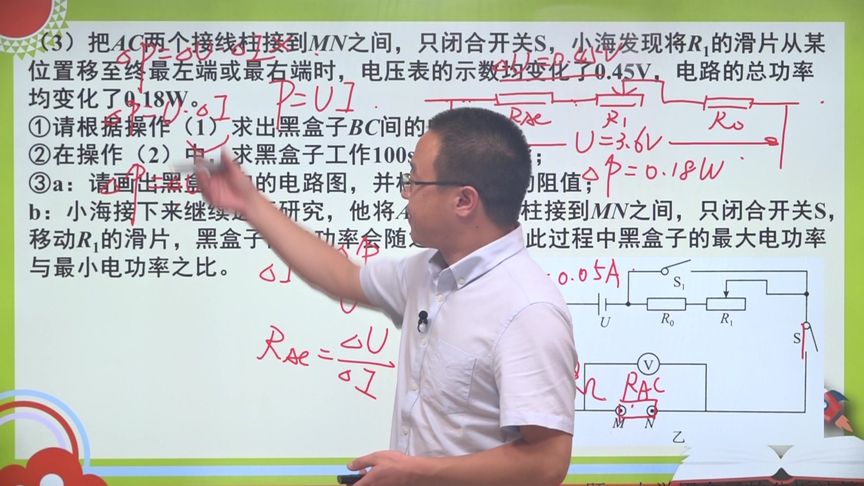 （3）把AC两个接线柱接到MN之间，只闭合开关S，小海发现将R₁的滑片从某
位置移至终最左端或最右端时，电压表的示数均变化了0.45V，电路的总功率
均变化了0.18W。
P=UI.
RAC
R1
R0
U=3.6V
△P=0.18W
①请根据操作（1）求出黑盒子BC间的
②在操作（2）中，求黑盒子工作100s
；
③a：请画出黑盒
的电路图，并
的阻值；
b：小海接下来继续
研究，他将
柱接到MN之间，只闭合开关S，
移动R₁的滑片，黑盒子
功率会随
此过程中黑盒子的最大电功率
与最小电功率之比。
△I
0.05A
RAC=△U/△I
S₁
U
R₀
R₁
S
V
Ω
RAC
M
N
乙